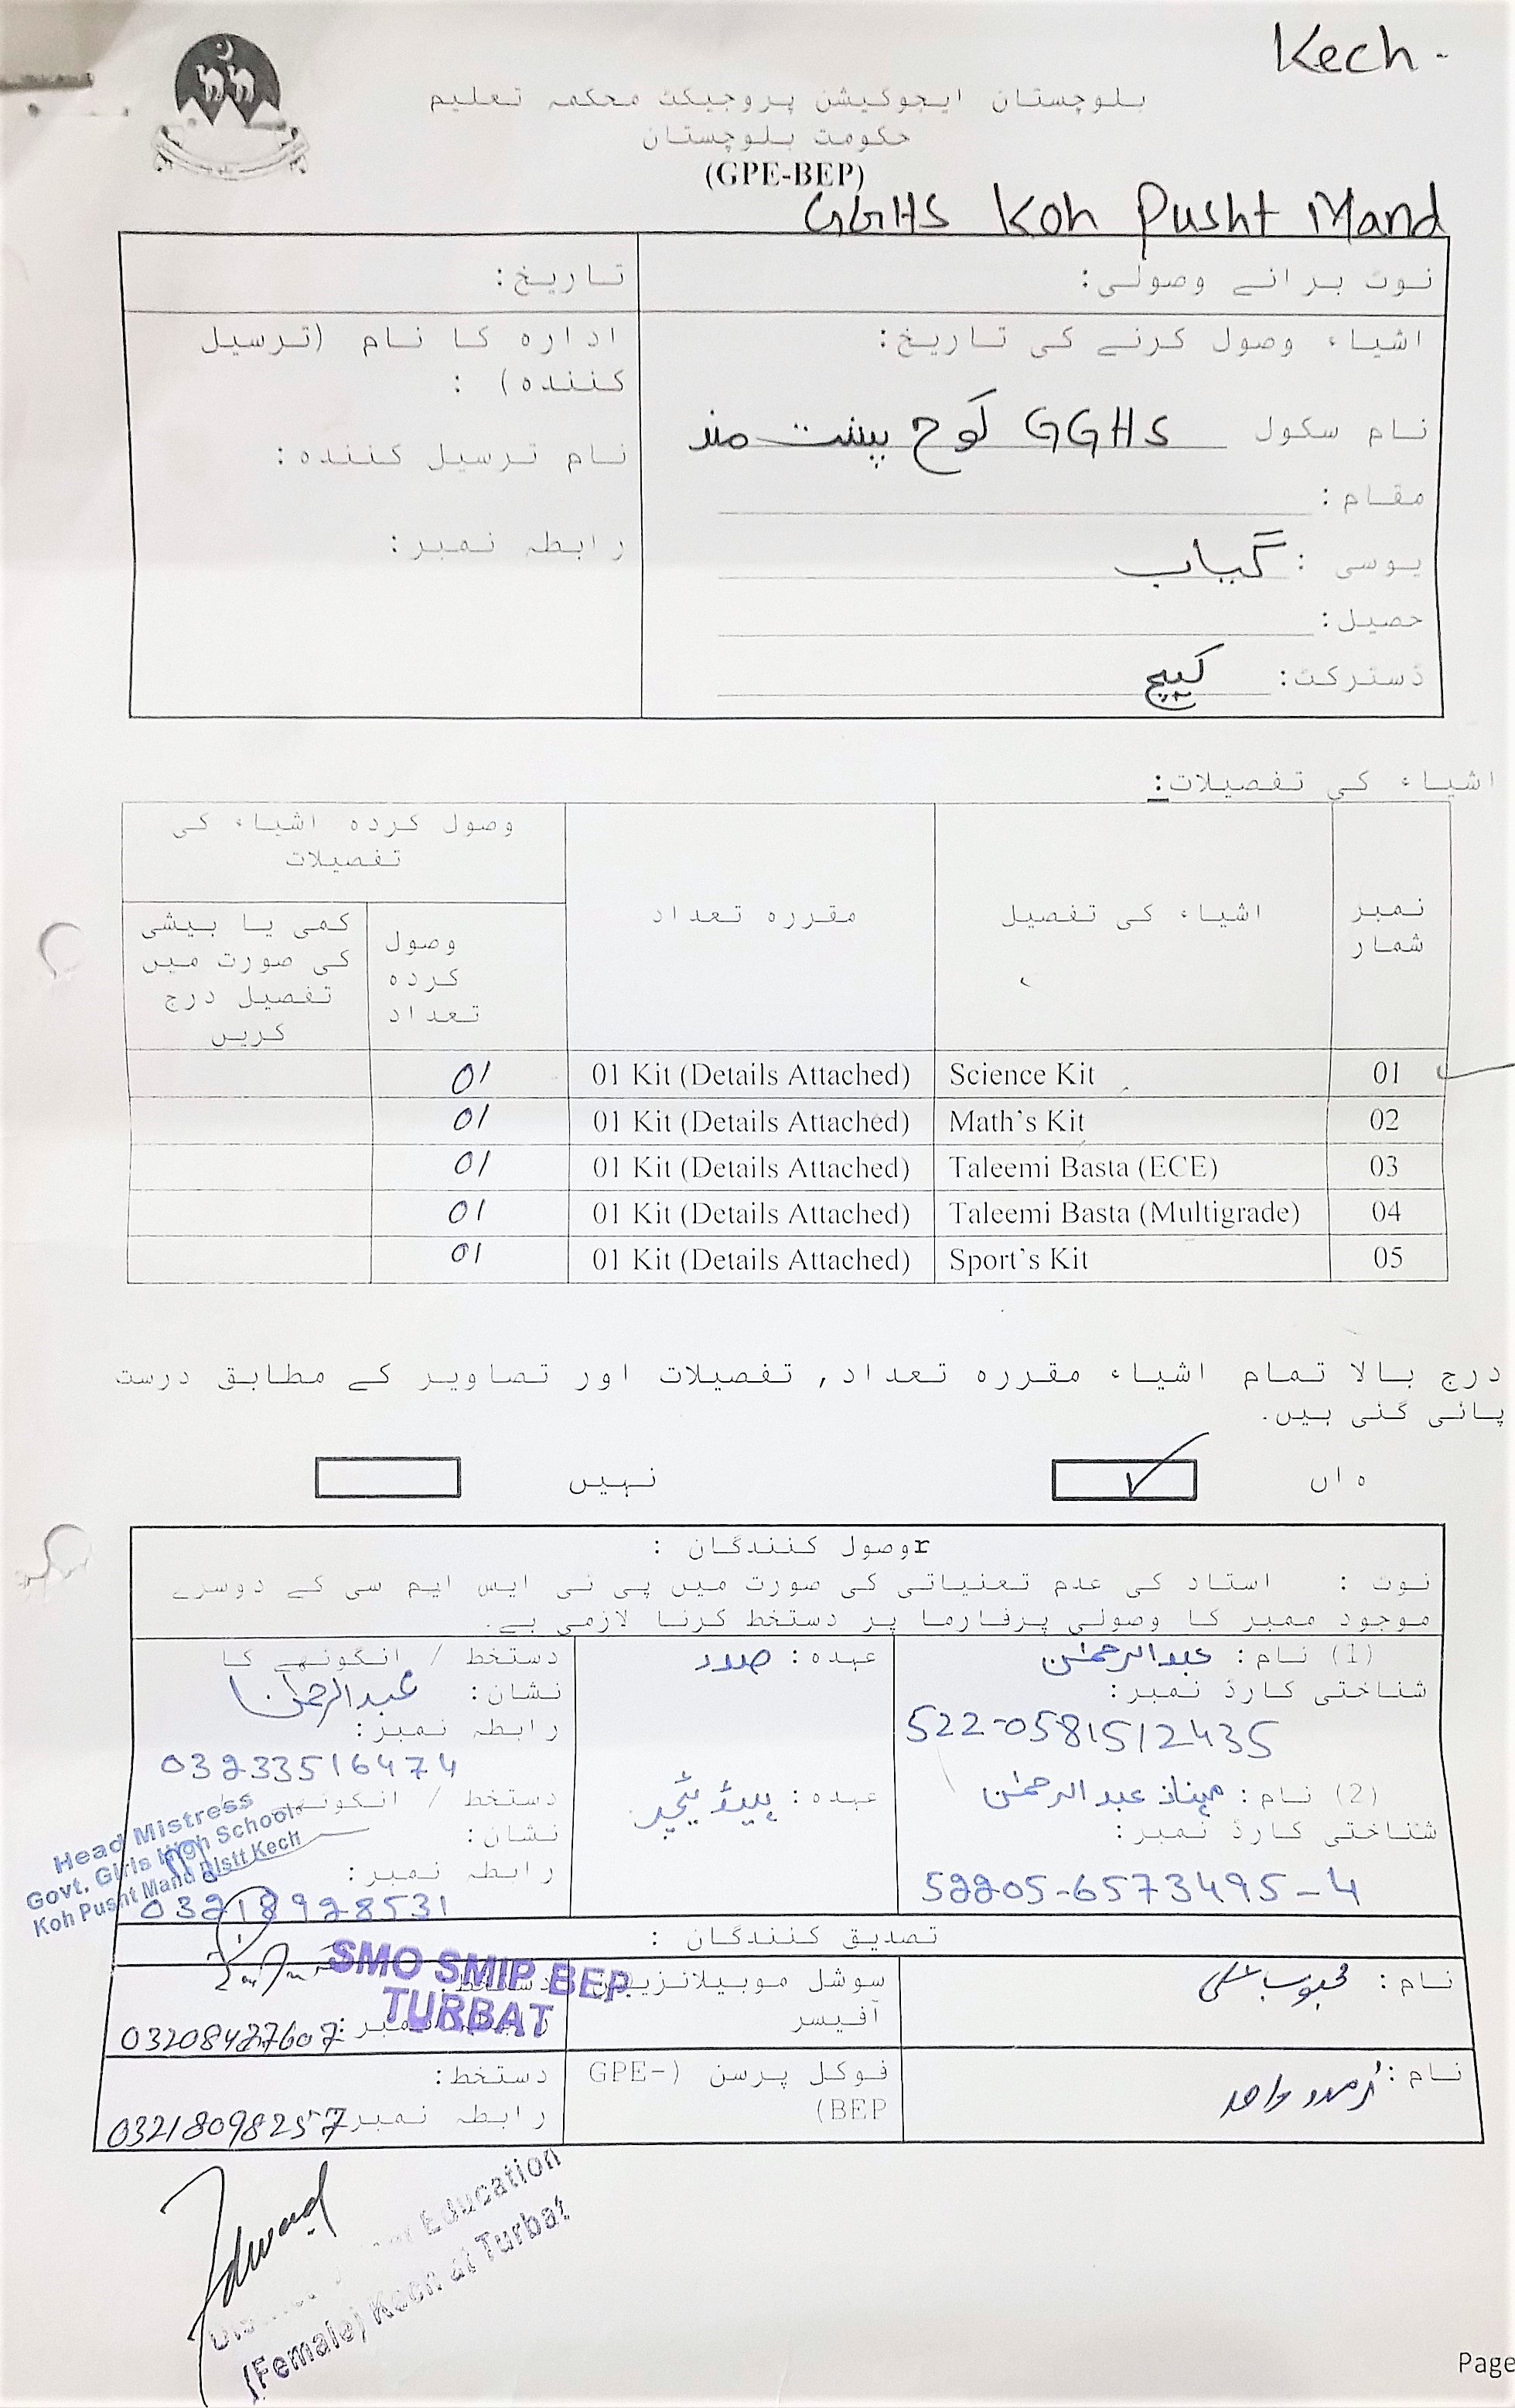 Kech -
بلوچستان ایجوکیشن پروجیکٹ محکمہ تعلیم
حکومت بلوچستان
(GPE-BEP)
GGHS Koh Pusht Mand
نوٹ برائے وصولی:
تاریخ:
اشیاء وصول کرنے کی تاریخ:
نام سکول GGHS کوح پشت مند
مقام:
یوسی: گیاب
حصیل:
ڈسٹرکٹ: کیچ
ادارہ کا نام (ترسیل
کنندہ) :
نام ترسیل کنندہ:
رابطہ نمبر:
اشیاء کی تفصیلات:
نمبر شمار
اشیاء کی تفصیل
مقررہ تعداد
وصول کردہ اشیاء کی تفصیلات
وصول کردہ تعداد
کمی یا بیشی کی صورت میں تفصیل درج کریں
01 Science Kit 01 Kit (Details Attached) 01
02 Math’s Kit 01 Kit (Details Attached) 01
03 Taleemi Basta (ECE) 01 Kit (Details Attached) 01
04 Taleemi Basta (Multigrade) 01 Kit (Details Attached) 01
05 Sport’s Kit 01 Kit (Details Attached) 01
درج بالا تمام اشیاء مقررہ تعداد, تفصیلات اور تصاویر کے مطابق درست
پائی گئی ہیں.
ہاں ✓
نہیں
rوصول کنندگان :
نوٹ : استاد کی عدم تعنیاتی کی صورت میں پی ٹی ایس ایم سی کے دوسرے
موجود ممبر کا وصولی پرفارما پر دستخط کرنا لازمی ہے.
(1) نام: عبدالرحمٰن
عہدہ: صدر
دستخط / انگوٹھے کا
نشان: عبدالرحمٰن
شناختی کارڈ نمبر:
522-0581512435
رابطہ نمبر:
03233516474
(2) نام: مہناز عبدالرحمٰن
عہدہ: ہیڈ ٹیچر
دستخط / انگوٹھے
نشان:
شناختی کارڈ نمبر:
52205-6573495-4
رابطہ نمبر:
03218928531
Head Mistress
Govt. Girls High School
Koh Pusht Mand Distt Kech
تصدیق کنندگان :
نام: محبوب علی
سوشل موبیلائزیشن
آفیسر
دستخط:
رابطہ نمبر: 03208427607
SMO SMIP BEP
TURBAT
نام: واحد
فوکل پرسن (GPE-
BEP)
دستخط:
رابطہ نمبر 03218098257
Education
(Female) Kech at Turbat
Page